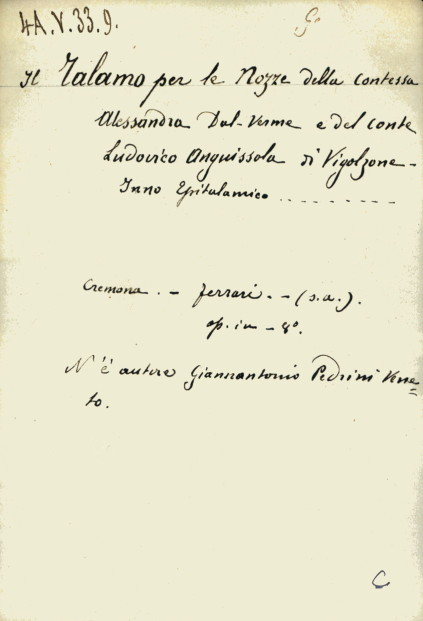 4A.V.33.9.
Il Talamo per le Nozze della Contessa
Alessandra Dal-Verme e del Conte
Ludovico Anguissola di Vigolzone -
Inno Epitalamico . . . . . . . .
Cremona . - Ferrari . - (s.a.).
op. in - 8°.
N'è autore Giannantonio Pedrini Vene=
to.
C